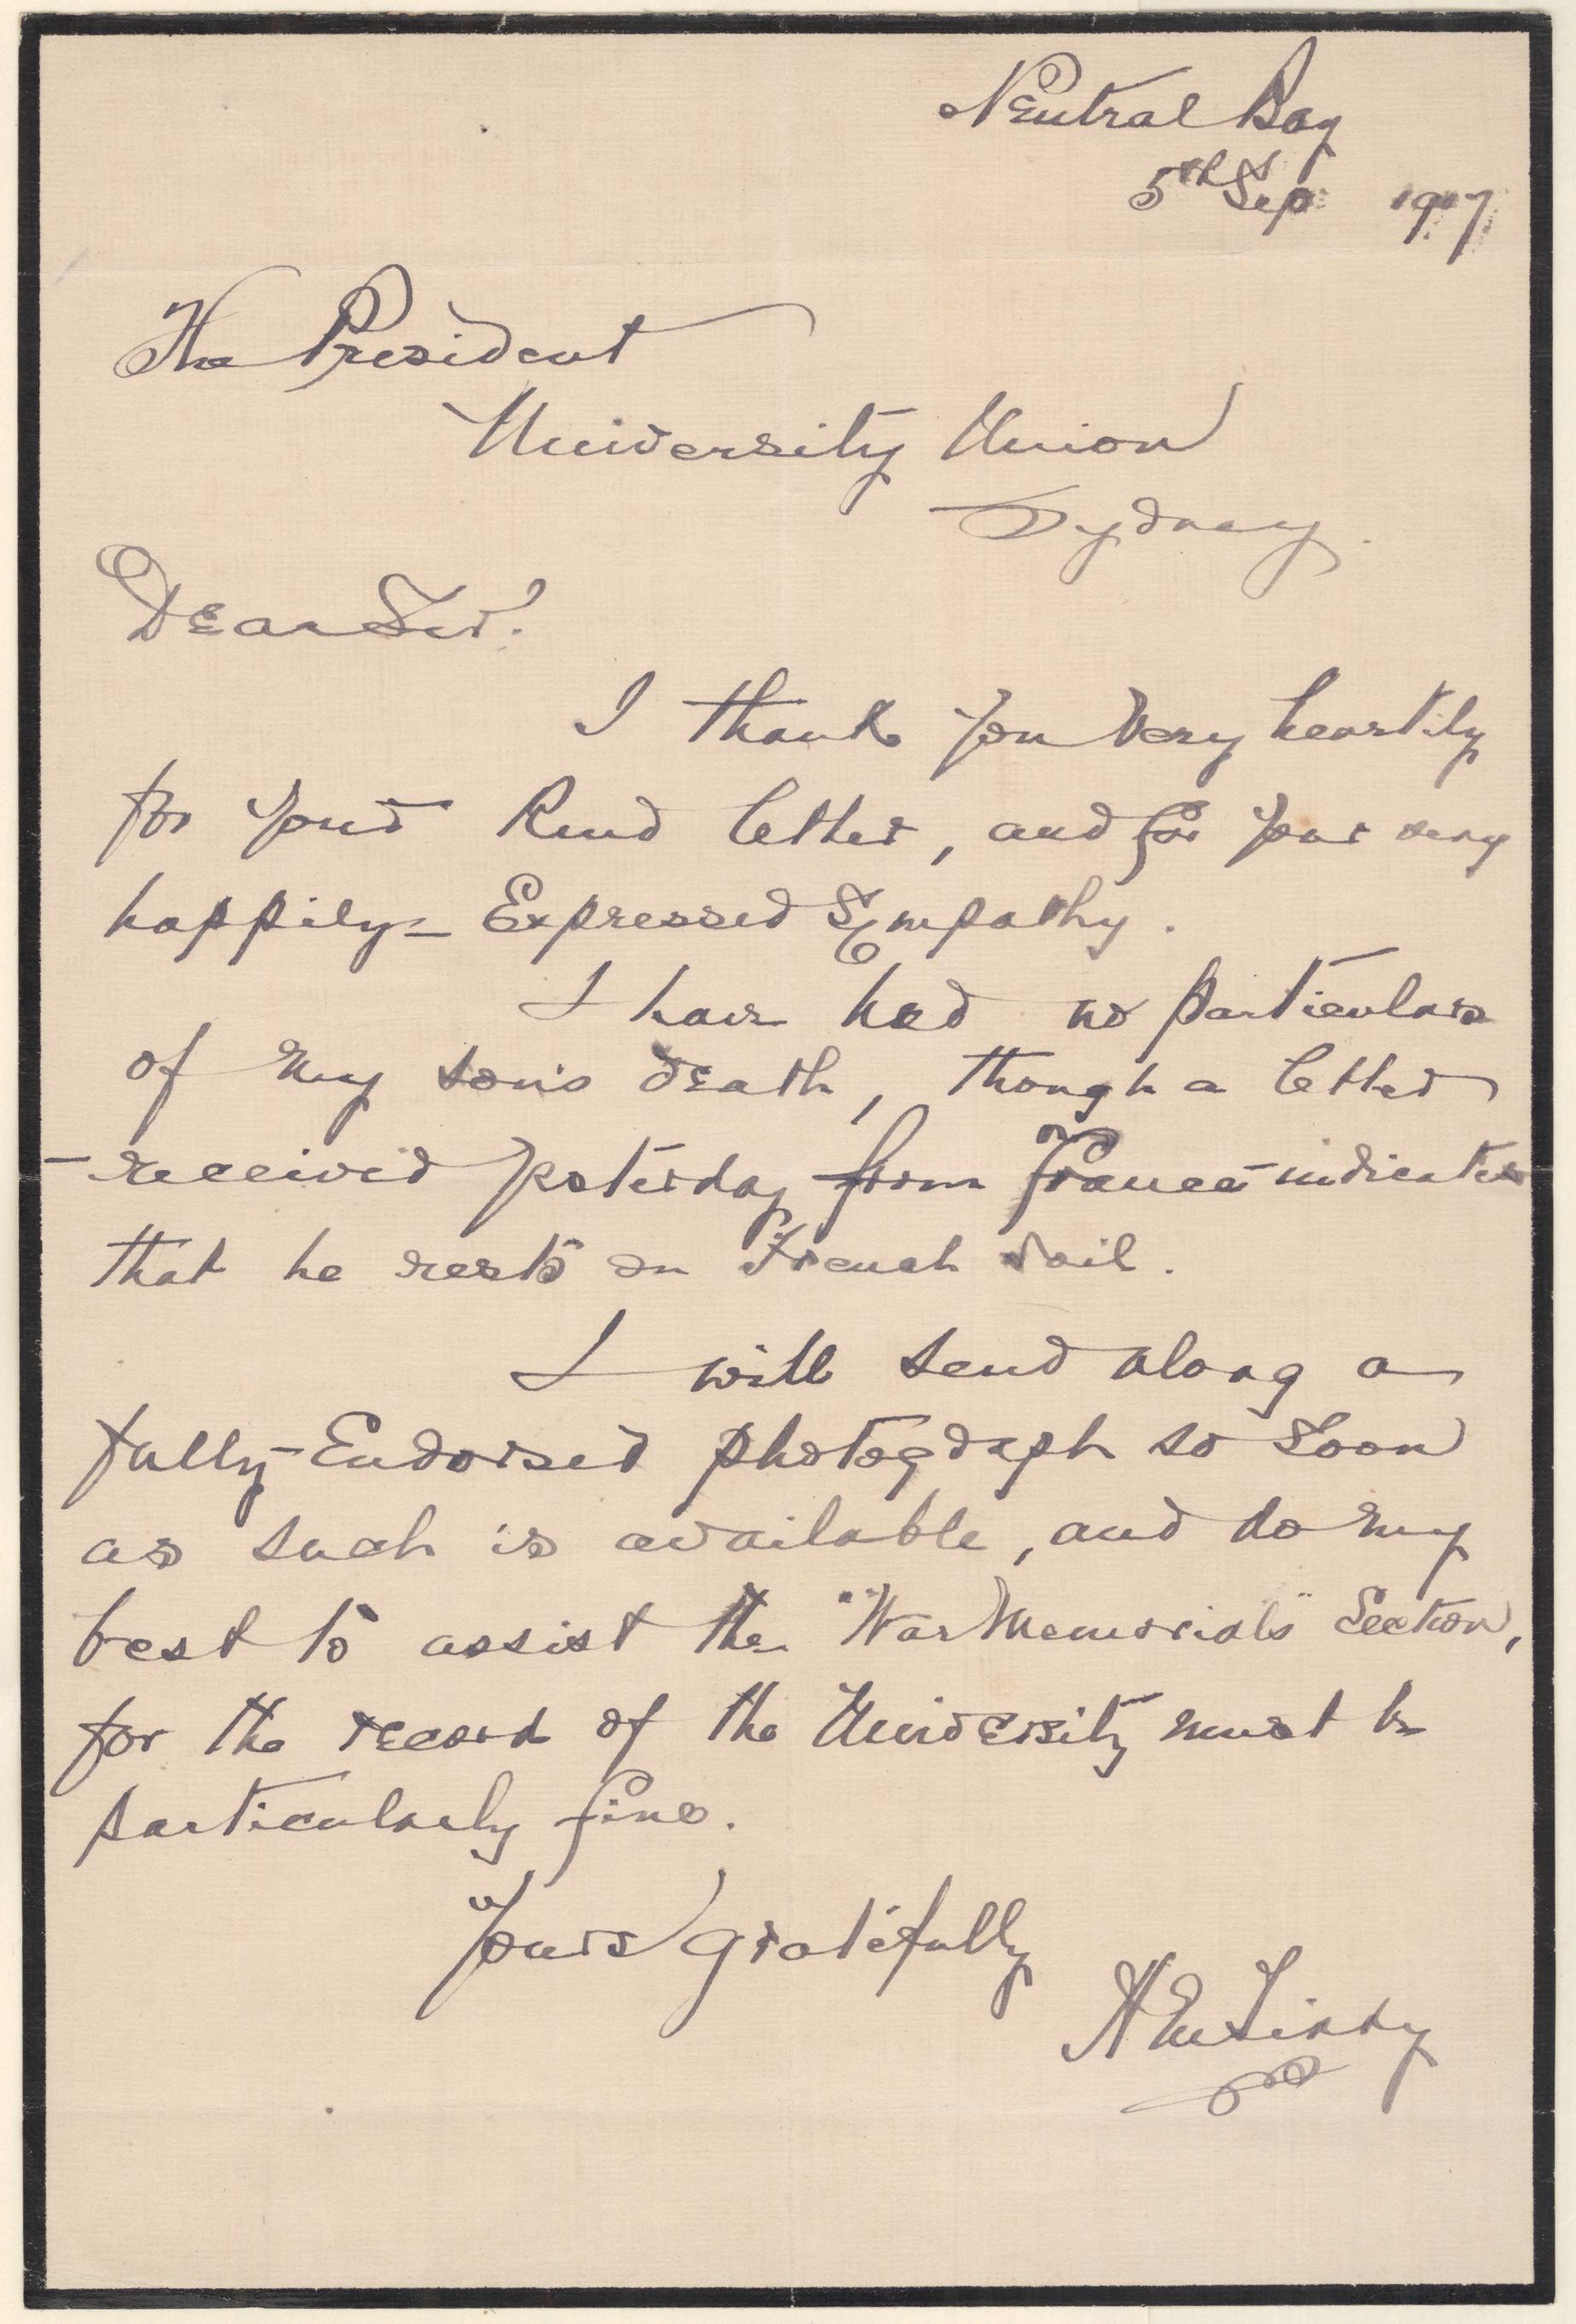 Neutral Bay
5th Sep 1917
The President
University Union
Sydney.
Dear Sir!
I thank you very heartily
for your kind letter, and for your very
happily-Expressed Sympathy.
I have had no particulars
of my son's death, though a letter
-received yesterday from France- indicates
that he rests on French soil.
I will send along a
fully-Endorsed photograph so soon
as such is available, and do my
best to assist the "War Memorials" Section,
for the record of the University must be
particularly fine.
Yours gratefully